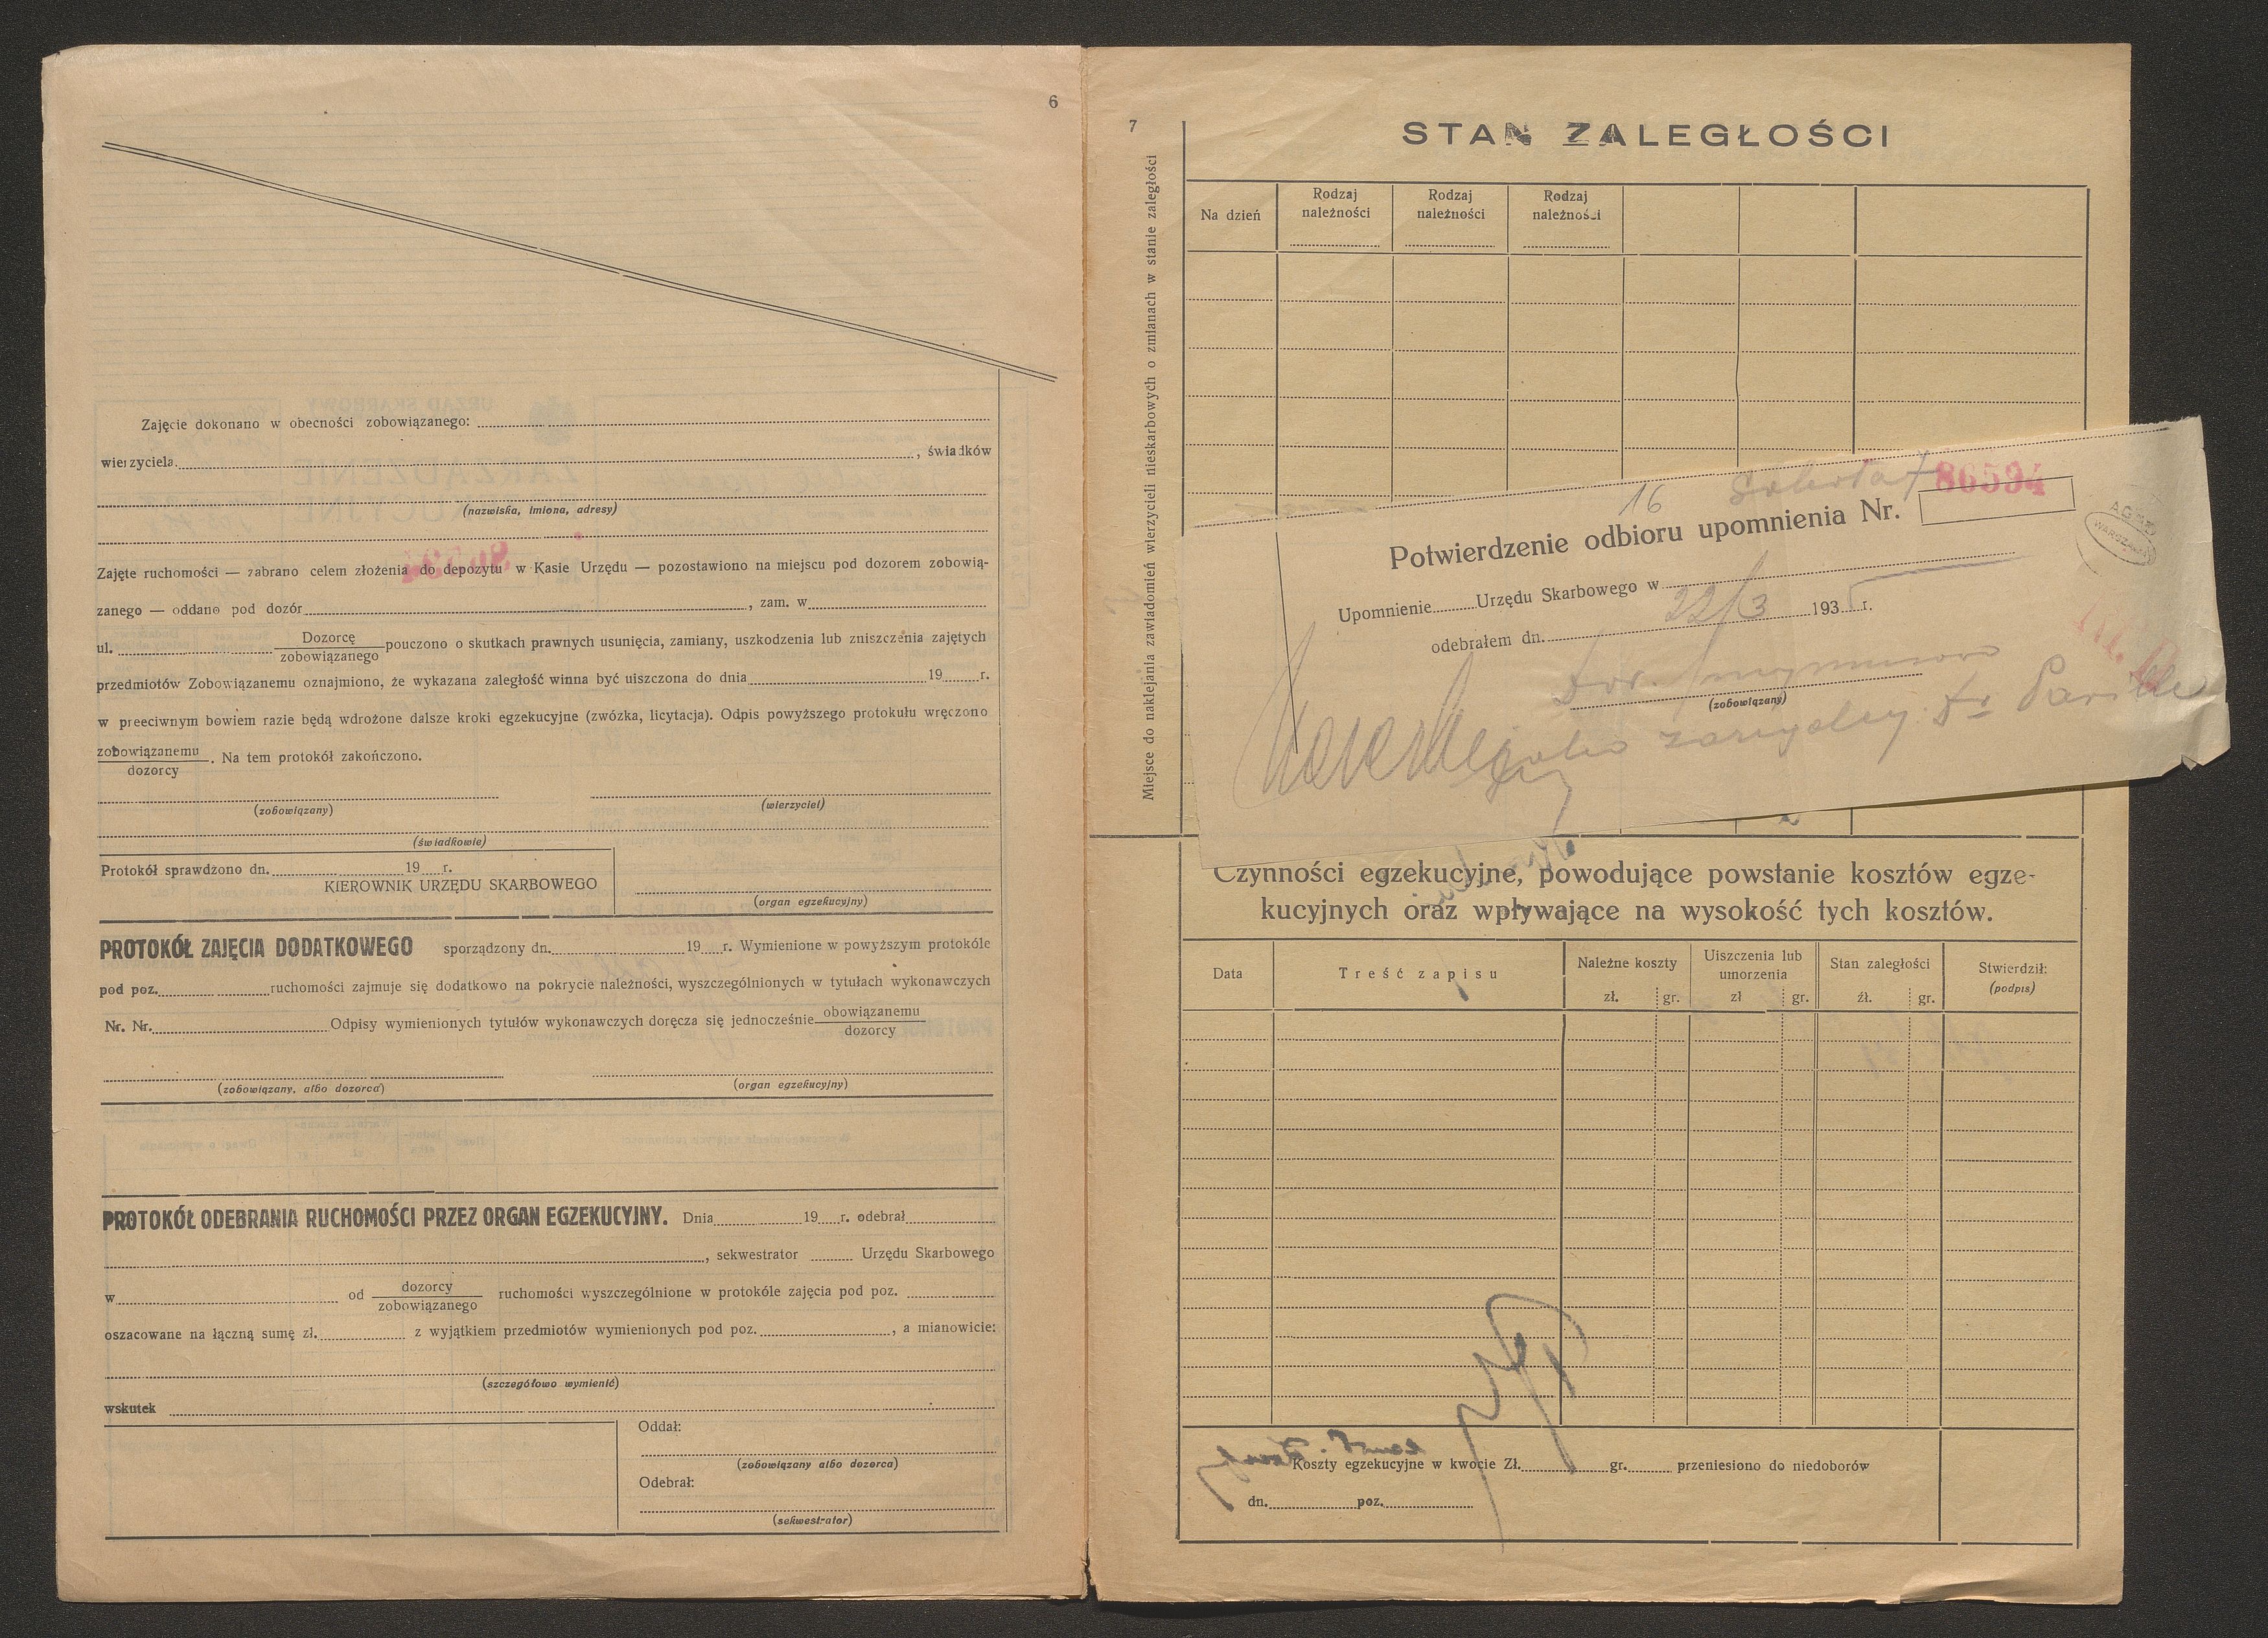 6
Zajęcie dokonano w obecności zobowiązanego:
wierzyciela , świadków
(nazwiska, imiona, adresy)
Zajęte ruchomości — zabrano celem złożenia do depozytu w Kasie Urzędu — pozostawiono na miejscu pod dozorem zobowią-
zanego — oddano pod dozór , zam. w
ul. Dozorcę zobowiązanego pouczono o skutkach prawnych usunięcia, zamiany, uszkodzenia lub zniszczenia zajętych
przedmiotów Zobowiązanemu oznajmiono, że wykazana zaległość winna być uiszczona do dnia 19 r.
w preeciwnym bowiem razie będą wdrożone dalsze kroki egzekucyjne (zwózka, licytacja). Odpis powyższego protokułu wręczono
zobowiązanemu
dozorcy . Na tem protokół zakończono.
(zobowiązany) (wierzyciel)
(świadkowie)
Protokół sprawdzono dn. 19 r.
KIEROWNIK URZĘDU SKARBOWEGO
(organ egzekucyjny)
PROTOKÓŁ ZAJĘCIA DODATKOWEGO sporządzony dn. 19 r. Wymienione w powyższym protokóle
pod poz. ruchomości zajmuje się dodatkowo na pokrycie należności, wyszczególnionych w tytułach wykonawczych
Nr. Nr. Odpisy wymienionych tytułów wykonawczych doręcza się jednocześnie obowiązanemu
dozorcy
(zobowiązany, albo dozorca) (organ egzekucyjny)
PROTOKÓŁ ODEBRANIA RUCHOMOŚCI PRZEZ ORGAN EGZEKUCYJNY. Dnia 19 r. odebrał
, sekwestrator Urzędu Skarbowego
w od dozorcy zobowiązanego ruchomości wyszczególnione w protokóle zajęcia pod poz.
oszacowane na łączną sumę zł. z wyjątkiem przedmiotów wymienionych pod poz. , a mianowicie:
(szczegółowo wymienić)
wskutek
Oddał:
(zobowiązany albo dozorca)
Odebrał:
(sekwestrator)
7
Miejsce do naklejania zawiadomień wierzycieli nieskarbowych o zmianach w stanie zaległości
STAN ZALEGŁOŚCI
Na dzień Rodzaj należności Rodzaj należności Rodzaj należności
16 86594
Potwierdzenie odbioru upomnienia Nr.
Upomnienie Urzędu Skarbowego w
odebrałem dn. 22/3 1935 r.
(zobowiązany)
WARSZAWA
Czynności egzekucyjne, powodujące powstanie kosztów egze-
kucyjnych oraz wpływające na wysokość tych kosztów.
Data Treść zapisu Należne koszty Uiszczenia lub umorzenia Stan zaległości Stwierdził: (podpis)
zł. gr. zł gr. źł. gr.
Koszty egzekucyjne w kwocie Zł. gr. przeniesiono do niedoborów
dn. poz.